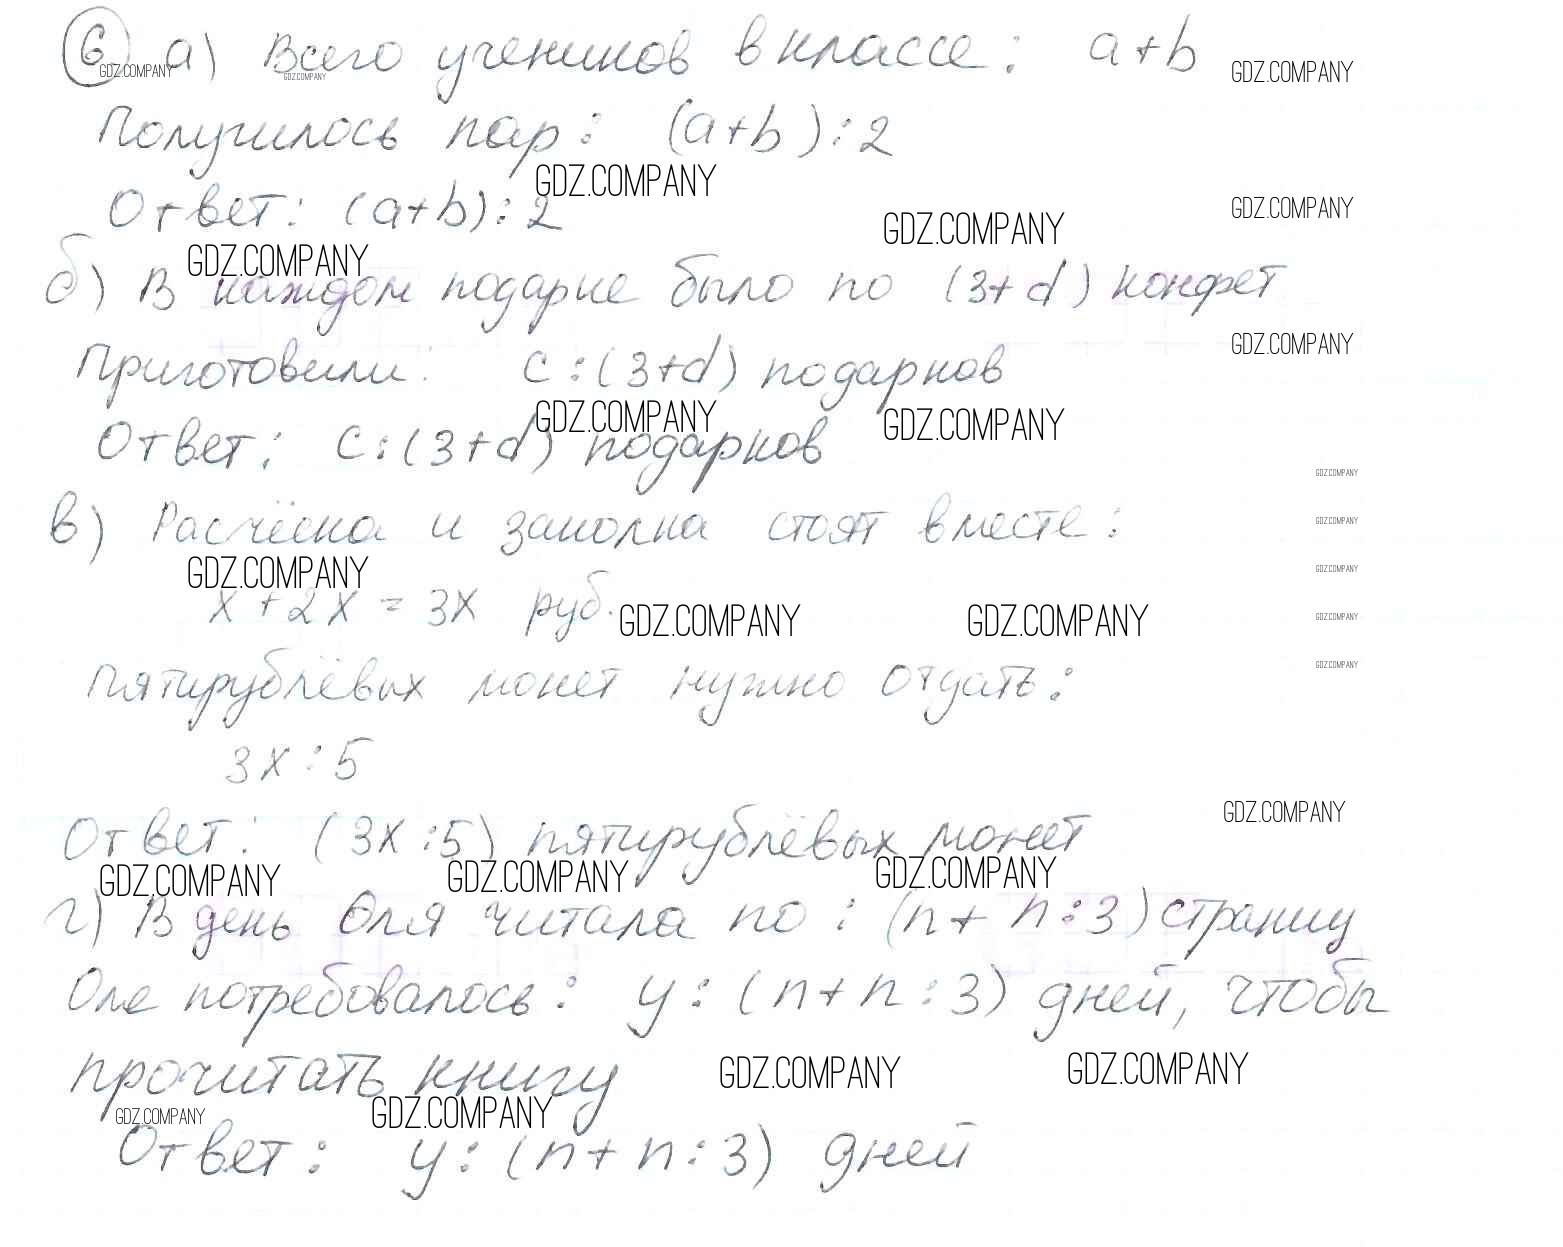 6 а) Всего учеников в классе: a+b
GDZ.COMPANY GDZ.COMPANY GDZ.COMPANY
Получилось пар: (a+b):2
GDZ.COMPANY
Ответ: (a+b):2
GDZ.COMPANY GDZ.COMPANY
GDZ.COMPANY
б) В каждом подарке было по (3+d) конфет
GDZ.COMPANY
Приготовили: c:(3+d) подарков
GDZ.COMPANY GDZ.COMPANY
Ответ: c:(3+d) подарков
GDZ.COMPANY
в) Расчёска и заколка стоят вместе:
GDZ.COMPANY
GDZ.COMPANY GDZ.COMPANY
x+2x=3x руб.
GDZ.COMPANY GDZ.COMPANY GDZ.COMPANY
GDZ.COMPANY
Пятирублёвых монет нужно отдать:
3x:5
GDZ.COMPANY
Ответ: (3x:5) пятирублёвых монет
GDZ.COMPANY GDZ.COMPANY GDZ.COMPANY
г) В день Оля читала по: (n+n:3) страниц
Оле потребовалось: y:(n+n:3) дней, чтобы
прочитать книгу
GDZ.COMPANY GDZ.COMPANY
GDZ.COMPANY GDZ.COMPANY
Ответ: y:(n+n:3) дней